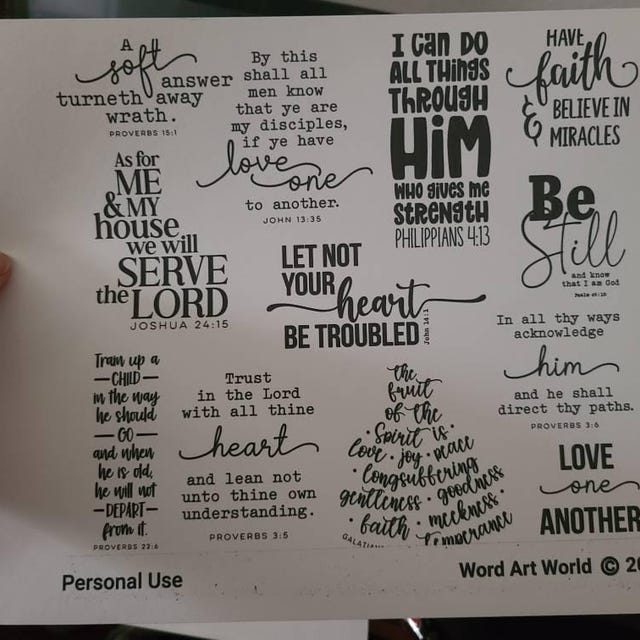 A
soft
answer
turneth away
wrath.
PROVERBS 15:1
By this
shall all
men know
that ye are
my disciples,
if ye have
love one
to another.
JOHN 13:35
I CAN DO
ALL THINGS
THROUGH
HIM
WHO GIVES ME
STRENGTH
PHILIPPIANS 4:13
HAVE
faith
& BELIEVE IN
MIRACLES
As for
ME
& MY
house
we will
SERVE
the LORD
JOSHUA 24:15
LET NOT
YOUR
heart
BE TROUBLED
John 14:1
Be
Still
and know
that I am God
Psalm 46:10
In all thy ways
acknowledge
him
and he shall
direct thy paths.
PROVERBS 3:6
Train up a
CHILD
in the way
he should
GO
and when
he is old,
he will not
DEPART
from it.
PROVERBS 22:6
Trust
in the Lord
with all thine
heart
and lean not
unto thine own
understanding.
PROVERBS 3:5
the
fruit
of the
Spirit is
love · joy · peace
· longsuffering
gentleness · goodness
· faith · meekness ·
temperance
LOVE
one
ANOTHER
Personal Use
Word Art World © 20